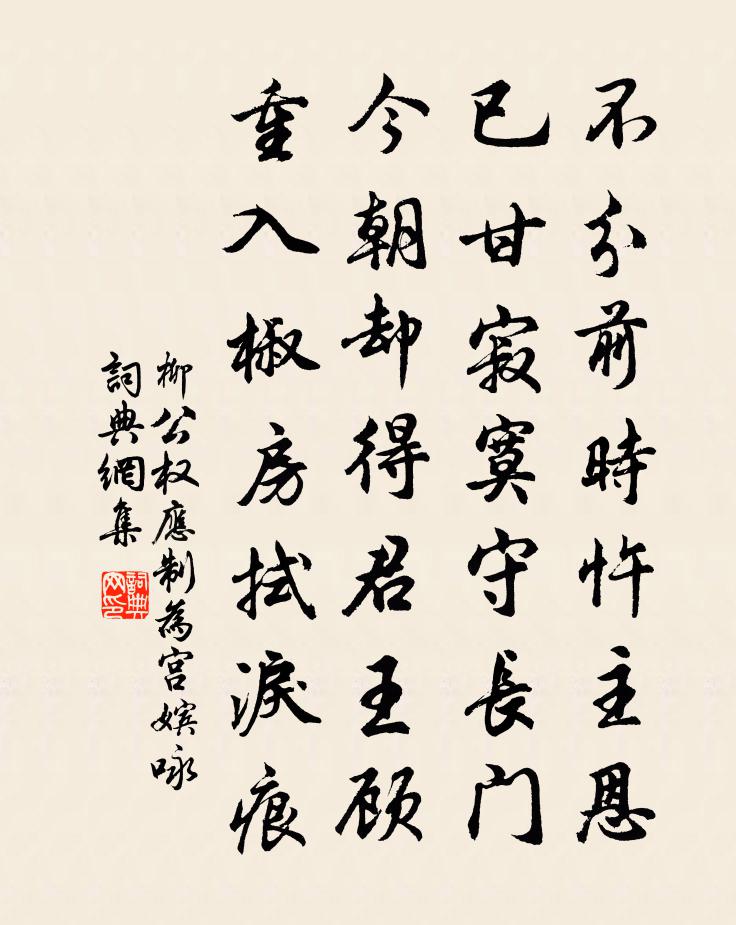 不分前時忤主恩
已甘寂寞守長門
今朝却得君王顾
重入椒房拭淚痕
柳公权應制為宮嬪咏
詞典網集
詞典网印